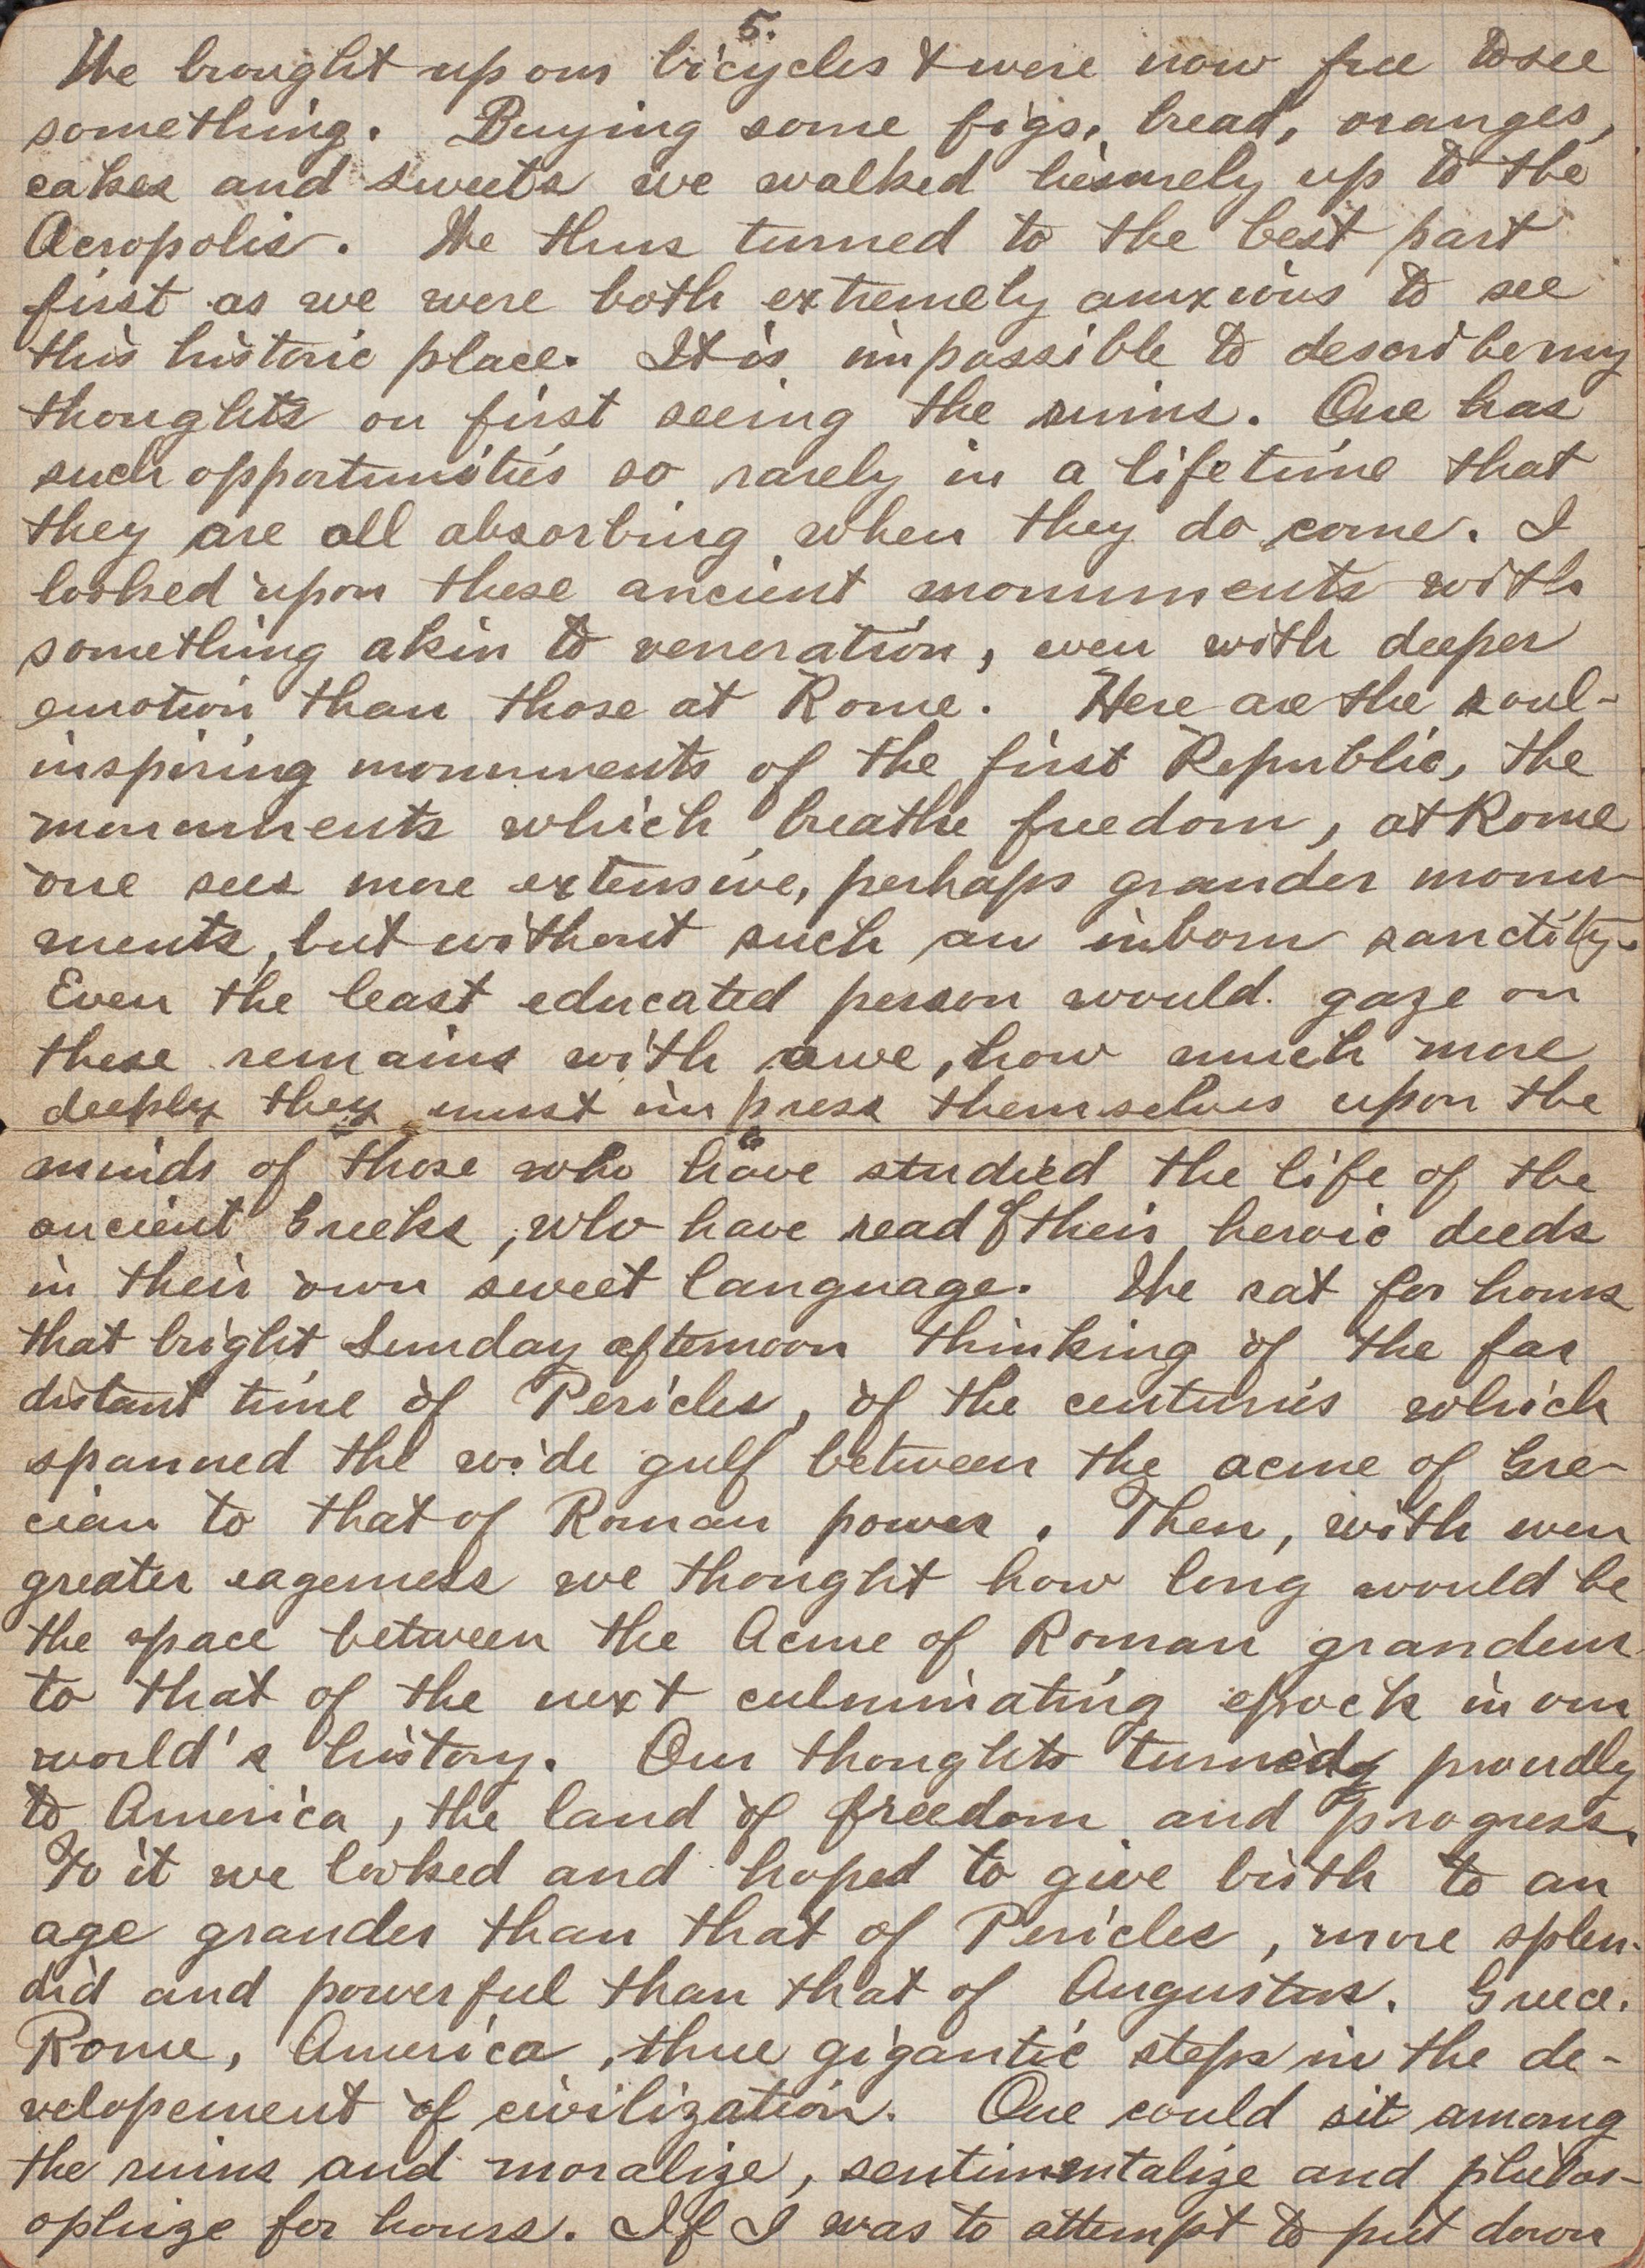 5.
We brought up our bicycles & were now free to see
something. Buying some figs, bread, oranges,
cakes and sweets we walked liesurely up to the
Acropolis. We thus turned to the best part
first as we were both extremely anxious to see
this historic place. It is impossible to describe my
thoughts on first seeing the ruins. One has
such opportunities so rarely in a lifetime that
they are all absorbing when they do come. I
looked upon these ancient monuments with
something akin to veneration, even with deeper
emotion than those at Rome. Here are the soul-
inspiring monuments of the first Republic, the
monuments which breathe freedom, at Rome
one sees more extensive, perhaps grander monu-
ments, but without such an inborn sanctity.
Even the least educated person would gaze on
these remains with awe, how much more
deeply they must impress themselves upon the
6
minds of those who have studied the life of the
ancient Greeks, who have read of their heroic deeds
in their own sweet language. We sat for hours
that bright Sunday afternoon thinking of the far
distant time of Pericles, of the centuries which
spanned the wide gulf between the acme of Gre-
cian to that of Roman power. Then, with even
greater eagerness we thought how long would be
the space between the Acme of Roman grandeur
to that of the next culminating epoch in our
world's history. Our thoughts turned proudly
to America, the land of freedom and progress.
To it we looked and hoped to give birth to an
age grander than that of Pericles, more splen-
did and powerful than that of Augustus. Greece.
Rome, America, three gigantic steps in the de-
velopement of civilization. One could sit among
the ruins and moralize, sentimentalize and philos-
ophize for hours. If I was to attempt to put down